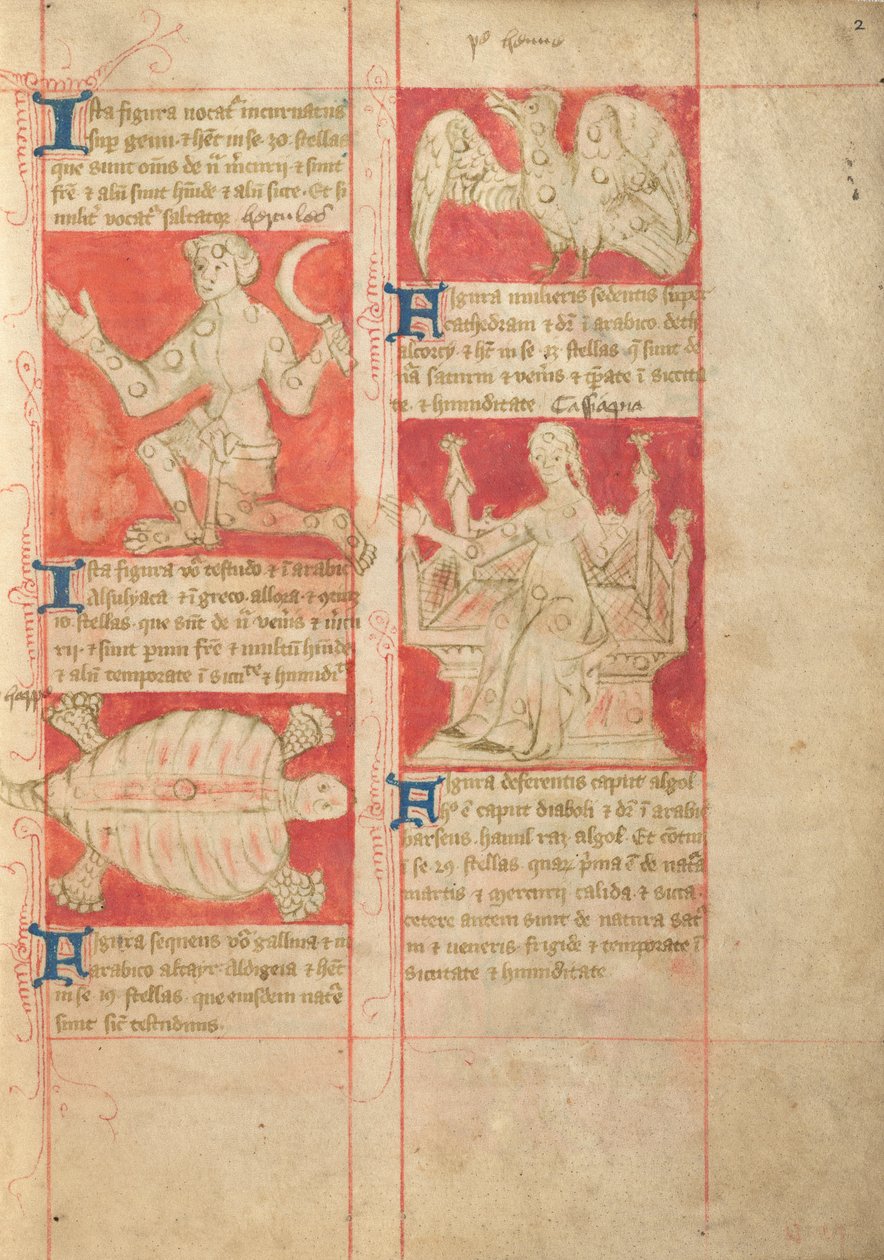 2
Ista figura uocatʳ incuruatus
sup̱ genu · ⁊ hēt in se · 30 · stellas
que sunt om̄s de n̄ m̄curii · ⁊ sunt
fr̄e ⁊ alīi sunt hu͞ide ⁊ alīi sicce · Et si
militʳ vocatʳ saltator · hercules
Ista figura voʳ testudo ⁊ ī arabic
Alsulyaca · ⁊ ī greco · allora · ⁊
10 · stellas · que sūt de n̄ ven̄is ⁊ m̄cu
rii · ⁊ sunt fr̄e ⁊ multum hu͞ide
⁊ alīi temporate ī siccitᵗᵉ ⁊ humiditᵗᵉ
Figura sequens voʳ gallina ⁊ in
arabico altayr · Aldigeia ⁊ hēt
in se · 19 · stellas · que eiusdem nat̄e
sunt sic̄ testudinis ·
Figura mulieris sedentis super
cathedram ⁊ dʳ ī arabico · deth
alcorcy · ⁊ hēt in se · 13 stellas q̄ sunt de
n̄a saturni ⁊ ven̄is ⁊ ī siccita
te · ⁊ humiditate Cassiapua
Figura deferentis caput algol
h° ē caput diaboli ⁊ dʳ ī arabic
barseus · hamil raz algol · Et cōtin
ī se · 29 stellas · quaꝝ p̄ma ē de nat̄a
martis ⁊ mercurii calida ⁊ sicca ·
cetere autem sunt de natura satʳ
ni ⁊ ueneris · frigide ⁊ temporate ī
siccitate ⁊ humiditate